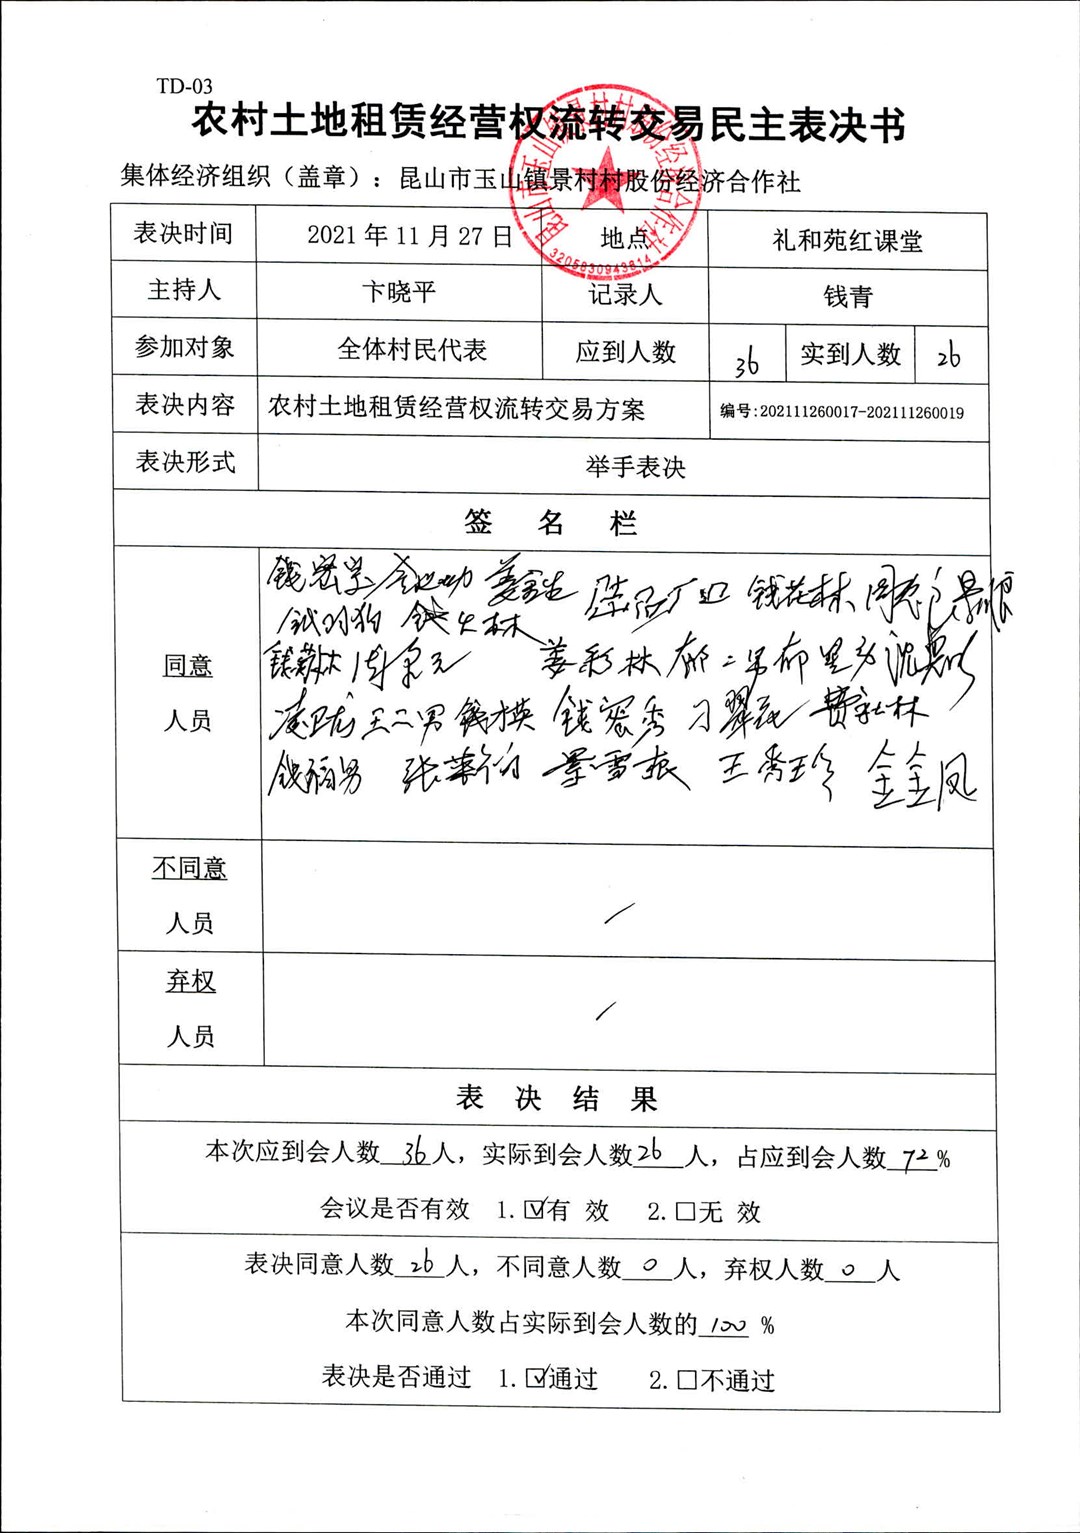 TD-03
农村土地租赁经营权流转交易民主表决书
集体经济组织（盖章）：昆山市玉山镇景村村股份经济合作社
昆山市玉山镇景村村股份经济合作社
3205830943814
表决时间 2021年11月27日 地点 礼和苑红课堂
主持人 卞晓平 记录人 钱青
参加对象 全体村民代表 应到人数 36 实到人数 26
表决内容 农村土地租赁经营权流转交易方案 编号:202111260017-202111260019
表决形式 举手表决
签 名 栏
同意
人员
钱花林
姜彩林 郁二男
王二男 钱才英 钱宏秀 刁翠花 费社林
景雪根 王秀珍 金金凤
不同意
人员
弃权
人员
表 决 结 果
本次应到会人数 36 人，实际到会人数 26 人，占应到会人数 72 %
会议是否有效 1.☑有 效 2.□无 效
表决同意人数 26 人，不同意人数 0 人，弃权人数 0 人
本次同意人数占实际到会人数的 100 %
表决是否通过 1.☑通过 2.□不通过